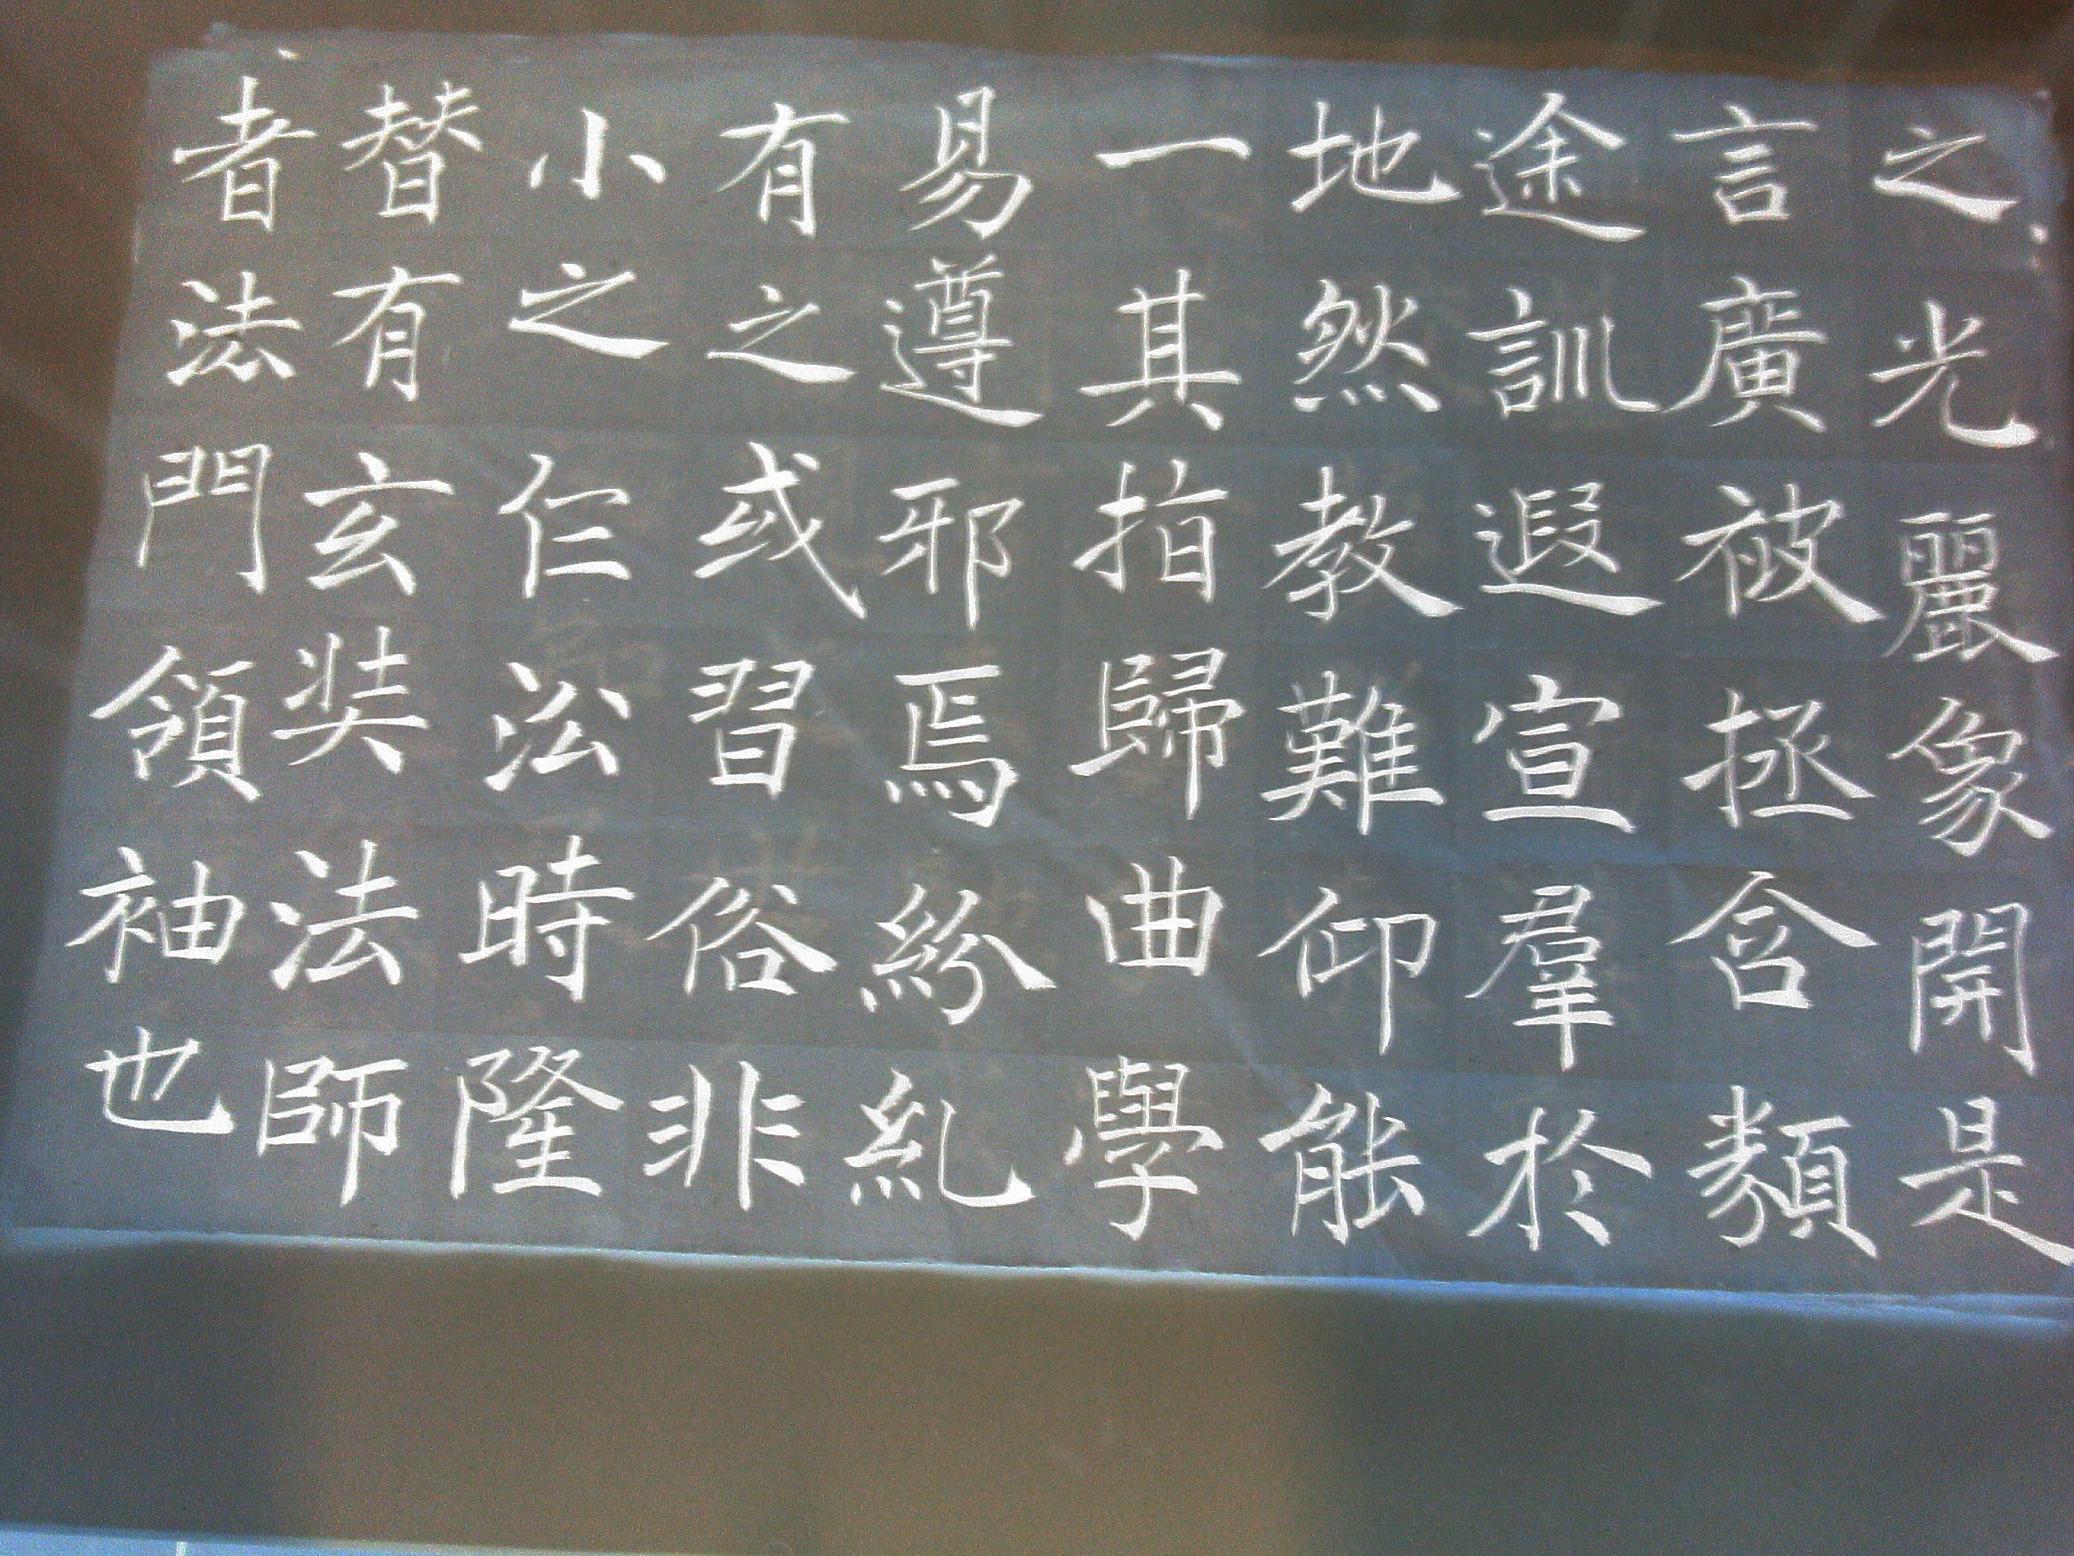 之光麗象開是
言廣被拯含類
途訓遐宣羣於
地然教難仰能
一其指歸曲學
易遵邪焉紛糺
有之或習俗非
小之仨㳂時隆
替有玄奘法師
者法門領袖也